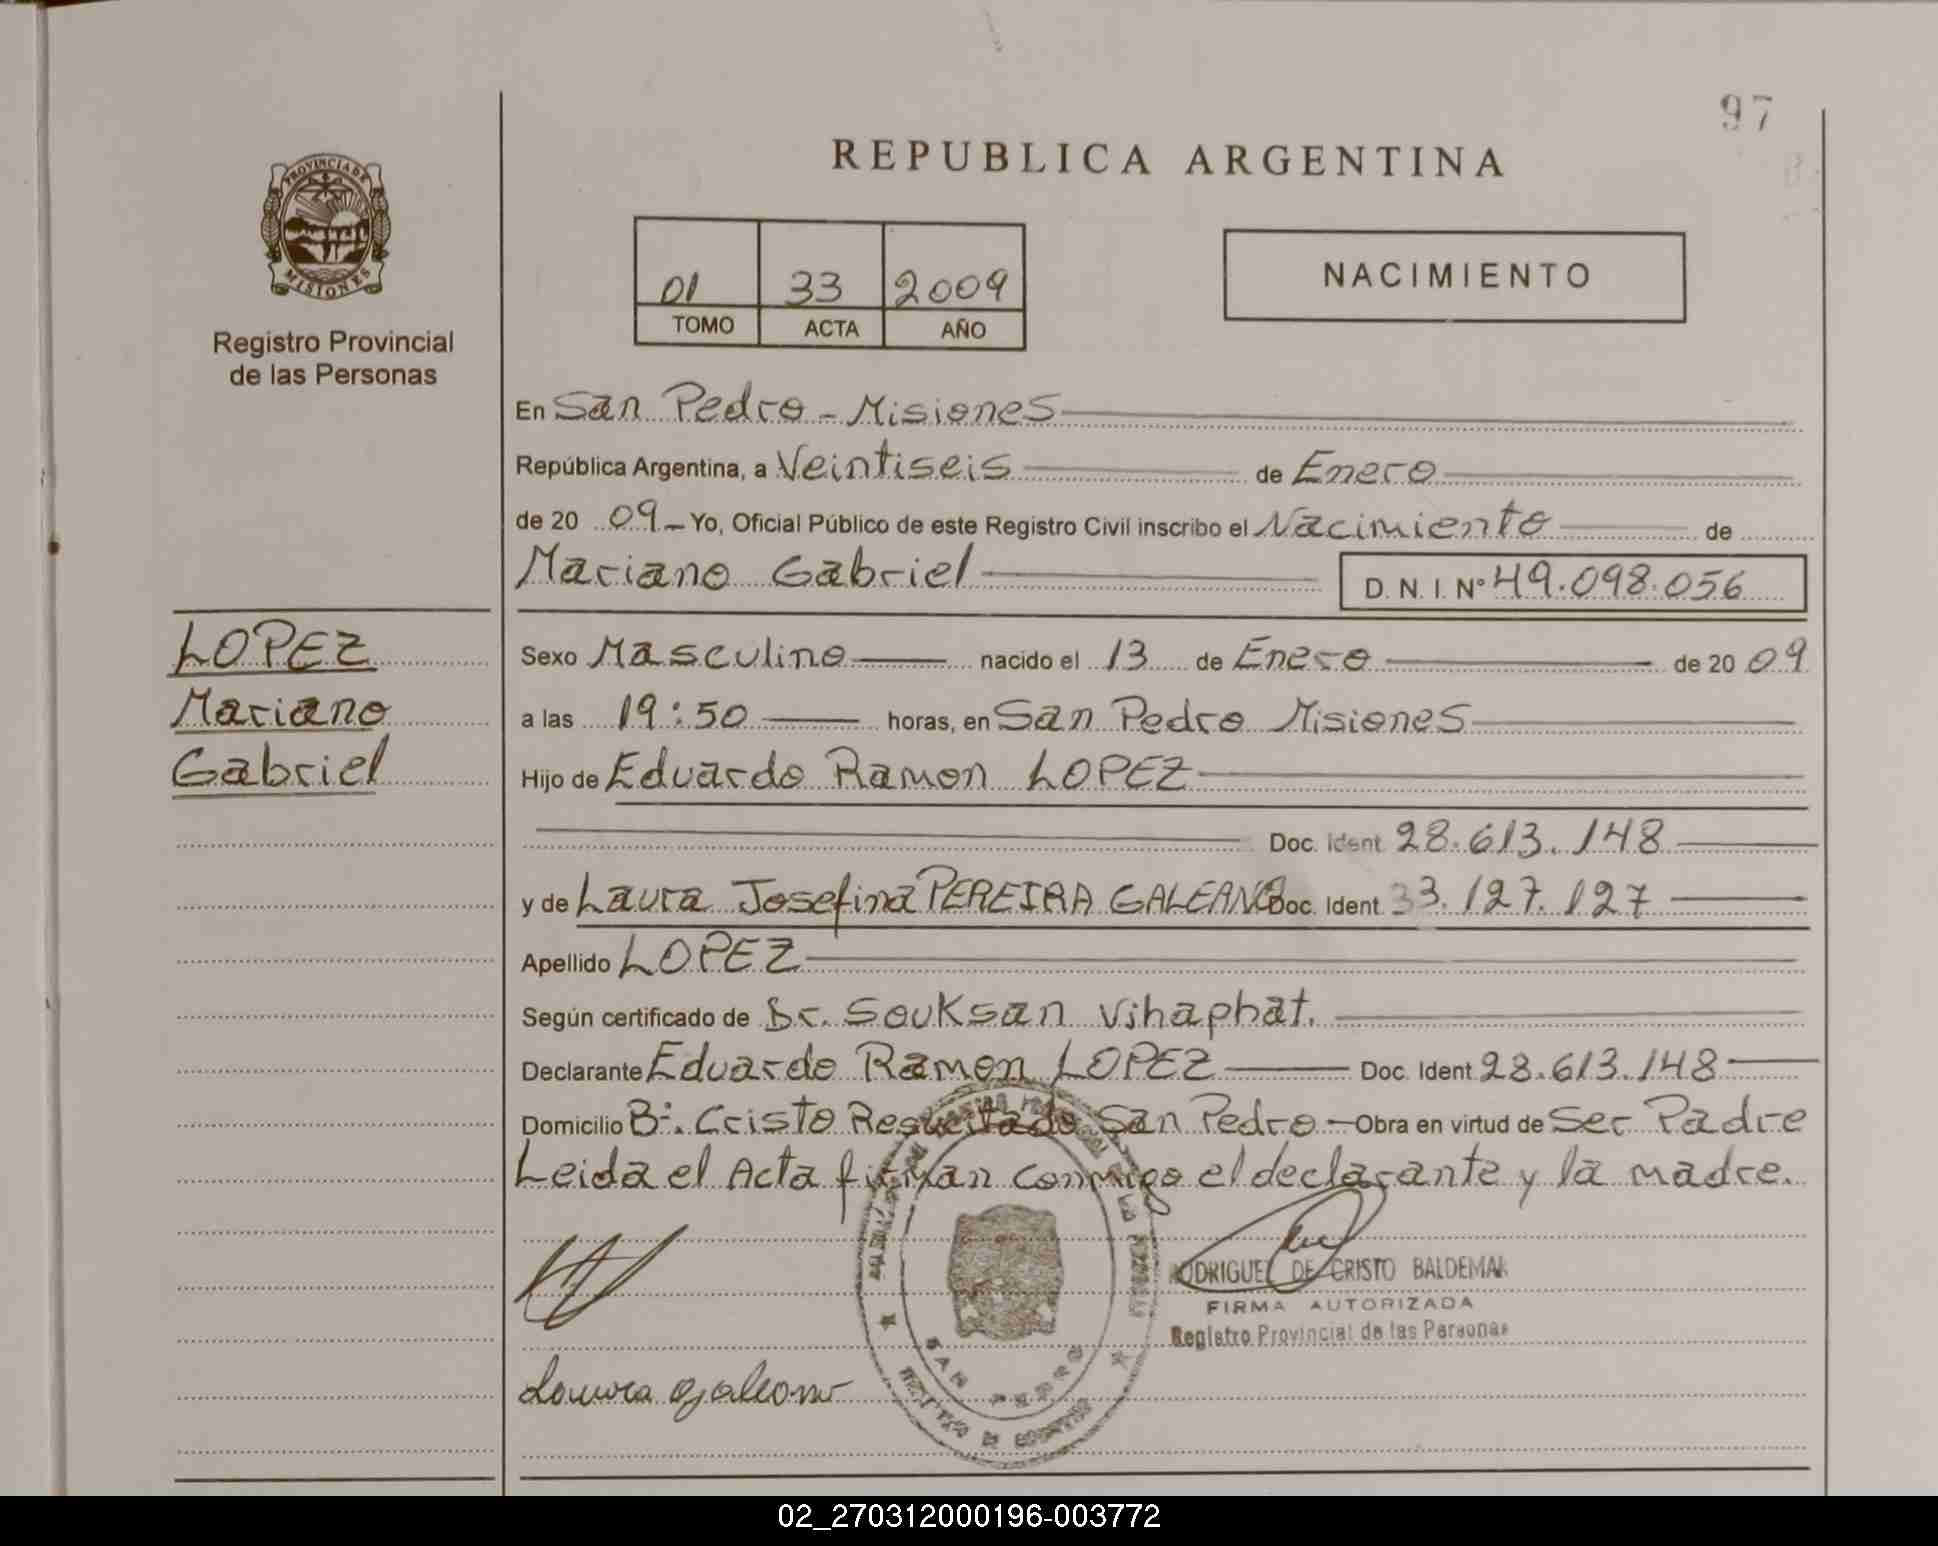 97
REPUBLICA ARGENTINA
PROVINCIA DE
MISIONES
Registro Provincial
de las Personas
01 33 2009
TOMO ACTA AÑO
NACIMIENTO
En San Pedro - Misiones
República Argentina, a Veintiseis de Enero
de 20 09 - Yo, Oficial Público de este Registro Civil inscribo el Nacimiento de
Mariano Gabriel D. N. I. Nº 49.098.056
LOPEZ
Mariano
Gabriel
Sexo Masculino nacido el 13 de Enero de 20 09
a las 19:50 horas, en San Pedro Misiones
Hijo de Eduardo Ramon LOPEZ
Doc. Ident. 28.613.148
y de Laura Josefina PEREIRA GALEANO Doc. Ident. 33.127.127
Apellido LOPEZ
Según certificado de Dr. Souksan Vihaphat.
Declarante Eduardo Ramon LOPEZ Doc. Ident. 28.613.148
Domicilio Bº. Cristo Resucitado San Pedro - Obra en virtud de Ser Padre
Leida el Acta firman conmigo el declarante y la madre.
RODRIGUEZ DE CRISTO BALDEMAR
FIRMA AUTORIZADA
Registro Provincial de las Personas
SAN PEDRO
02_270312000196-003772